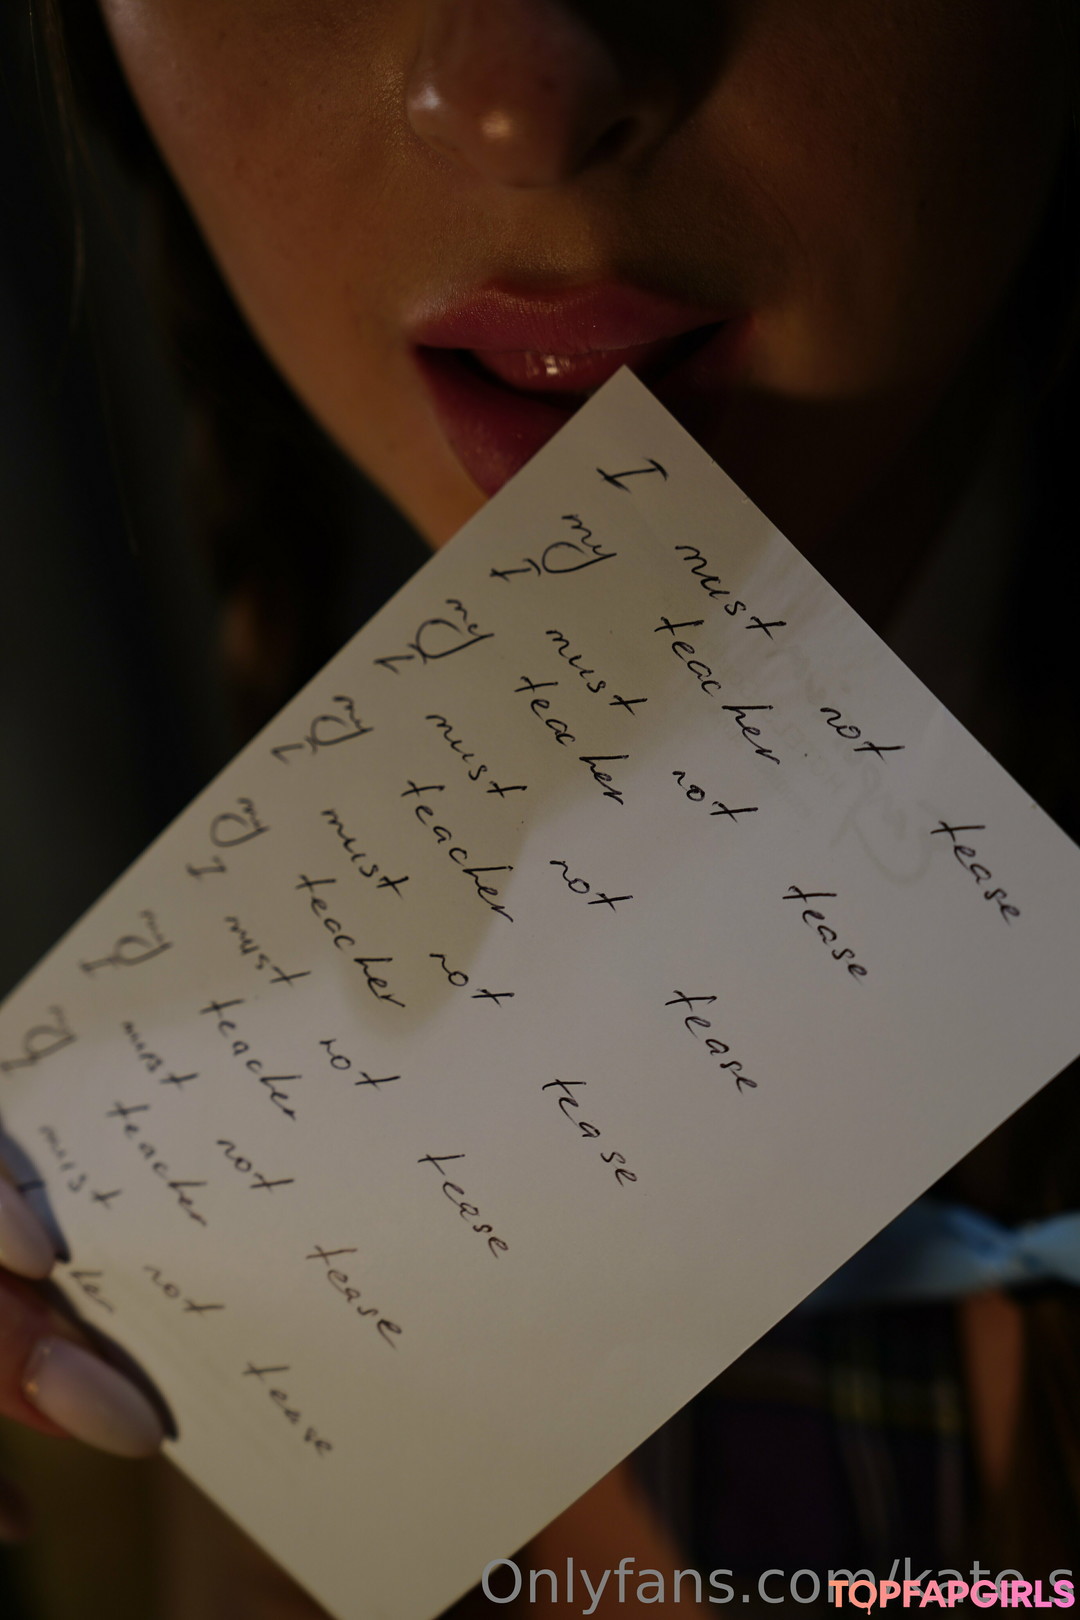 I must not tease
my teacher
I must not tease
my teacher
I must not tease
my teacher
I must not tease
my teacher
I must not tease
my teacher
I must not tease
my teacher
I must not tease
her
Onlyfans.com/kate.s
TOPFAPGIRLS